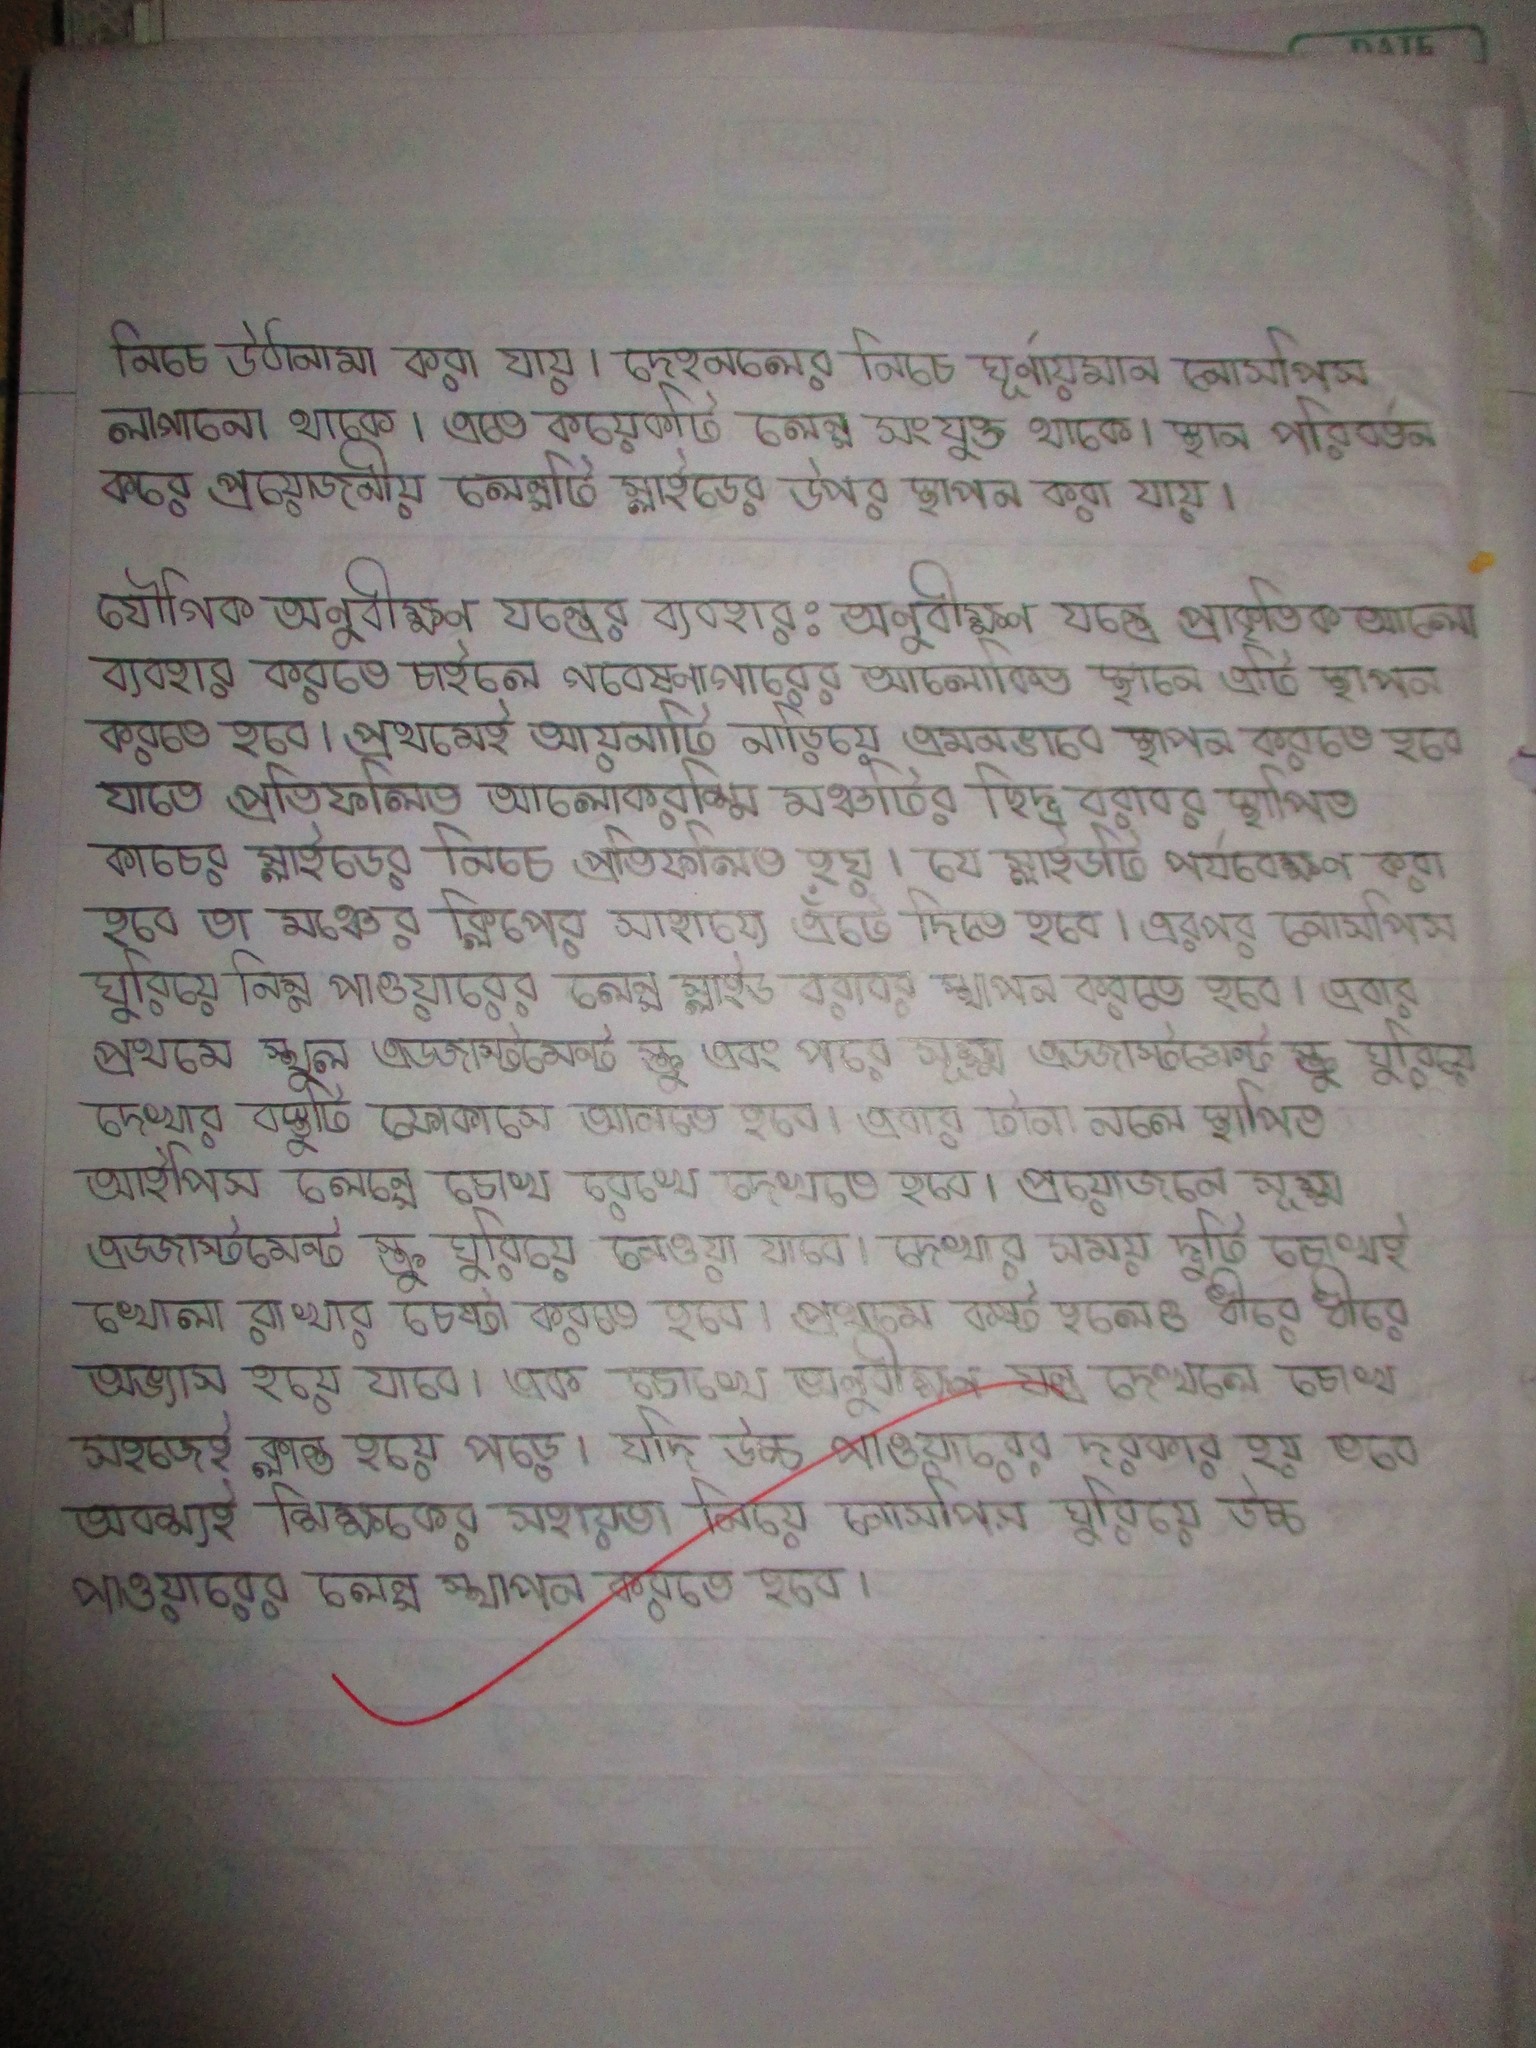 DATE
নিচে উঠানামা করা যায়। দেহনলের নিচে ঘূর্ণায়মান নোসপিস
লাগানো থাকে। এতে কয়েকটি লেন্স সংযুক্ত থাকে। স্থান পরিবর্তন
করে প্রয়োজনীয় লেন্সটি স্লাইডের উপর স্থাপন করা যায়।
যৌগিক অনুবীক্ষণ যন্ত্রের ব্যবহারঃ অনুবীক্ষণ যন্ত্রে প্রাকৃতিক আলো
ব্যবহার করতে চাইলে গবেষণাগারের আলোকিত স্থানে এটি স্থাপন
করতে হবে। প্রথমেই আয়নাটি নাড়িয়ে এমনভাবে স্থাপন করতে হবে
যাতে প্রতিফলিত আলোকরশ্মি মঞ্চটির ছিদ্র বরাবর স্থাপিত
কাচের স্লাইডের নিচে প্রতিফলিত হয়। যে স্লাইডটি পর্যবেক্ষণ করা
হবে তা মঞ্চের ক্লিপের সাহায্যে এঁটে দিতে হবে। এরপর নোসপিস
ঘুরিয়ে নিম্ন পাওয়ারের লেন্স স্লাইড বরাবর স্থাপন করতে হবে। এবার
প্রথমে স্থুল এডজাস্টমেন্ট স্ক্রু এবং পরে সূক্ষ্ম এডজাস্টমেন্ট স্ক্রু ঘুরিয়ে
দেখার বস্তুটি ফোকাসে আনতে হবে। এবার টানা নলে স্থাপিত
আইপিস লেন্সে চোখ রেখে দেখতে হবে। প্রয়োজনে সূক্ষ্ম
এডজাস্টমেন্ট স্ক্রু ঘুরিয়ে নেওয়া যাবে। দেখার সময় দুটি চোখই
খোলা রাখার চেষ্টা করতে হবে। প্রথমে কষ্ট হলেও ধীরে ধীরে
অভ্যাস হয়ে যাবে। এক চোখে অনুবীক্ষণ যন্ত্র দেখলে চোখ
সহজেই ক্লান্ত হয়ে পড়ে। যদি উচ্চ পাওয়ারের দরকার হয় তবে
অবশ্যই শিক্ষকের সহায়তা নিয়ে নোসপিস ঘুরিয়ে উচ্চ
পাওয়ারের লেন্স স্থাপন করতে হবে।